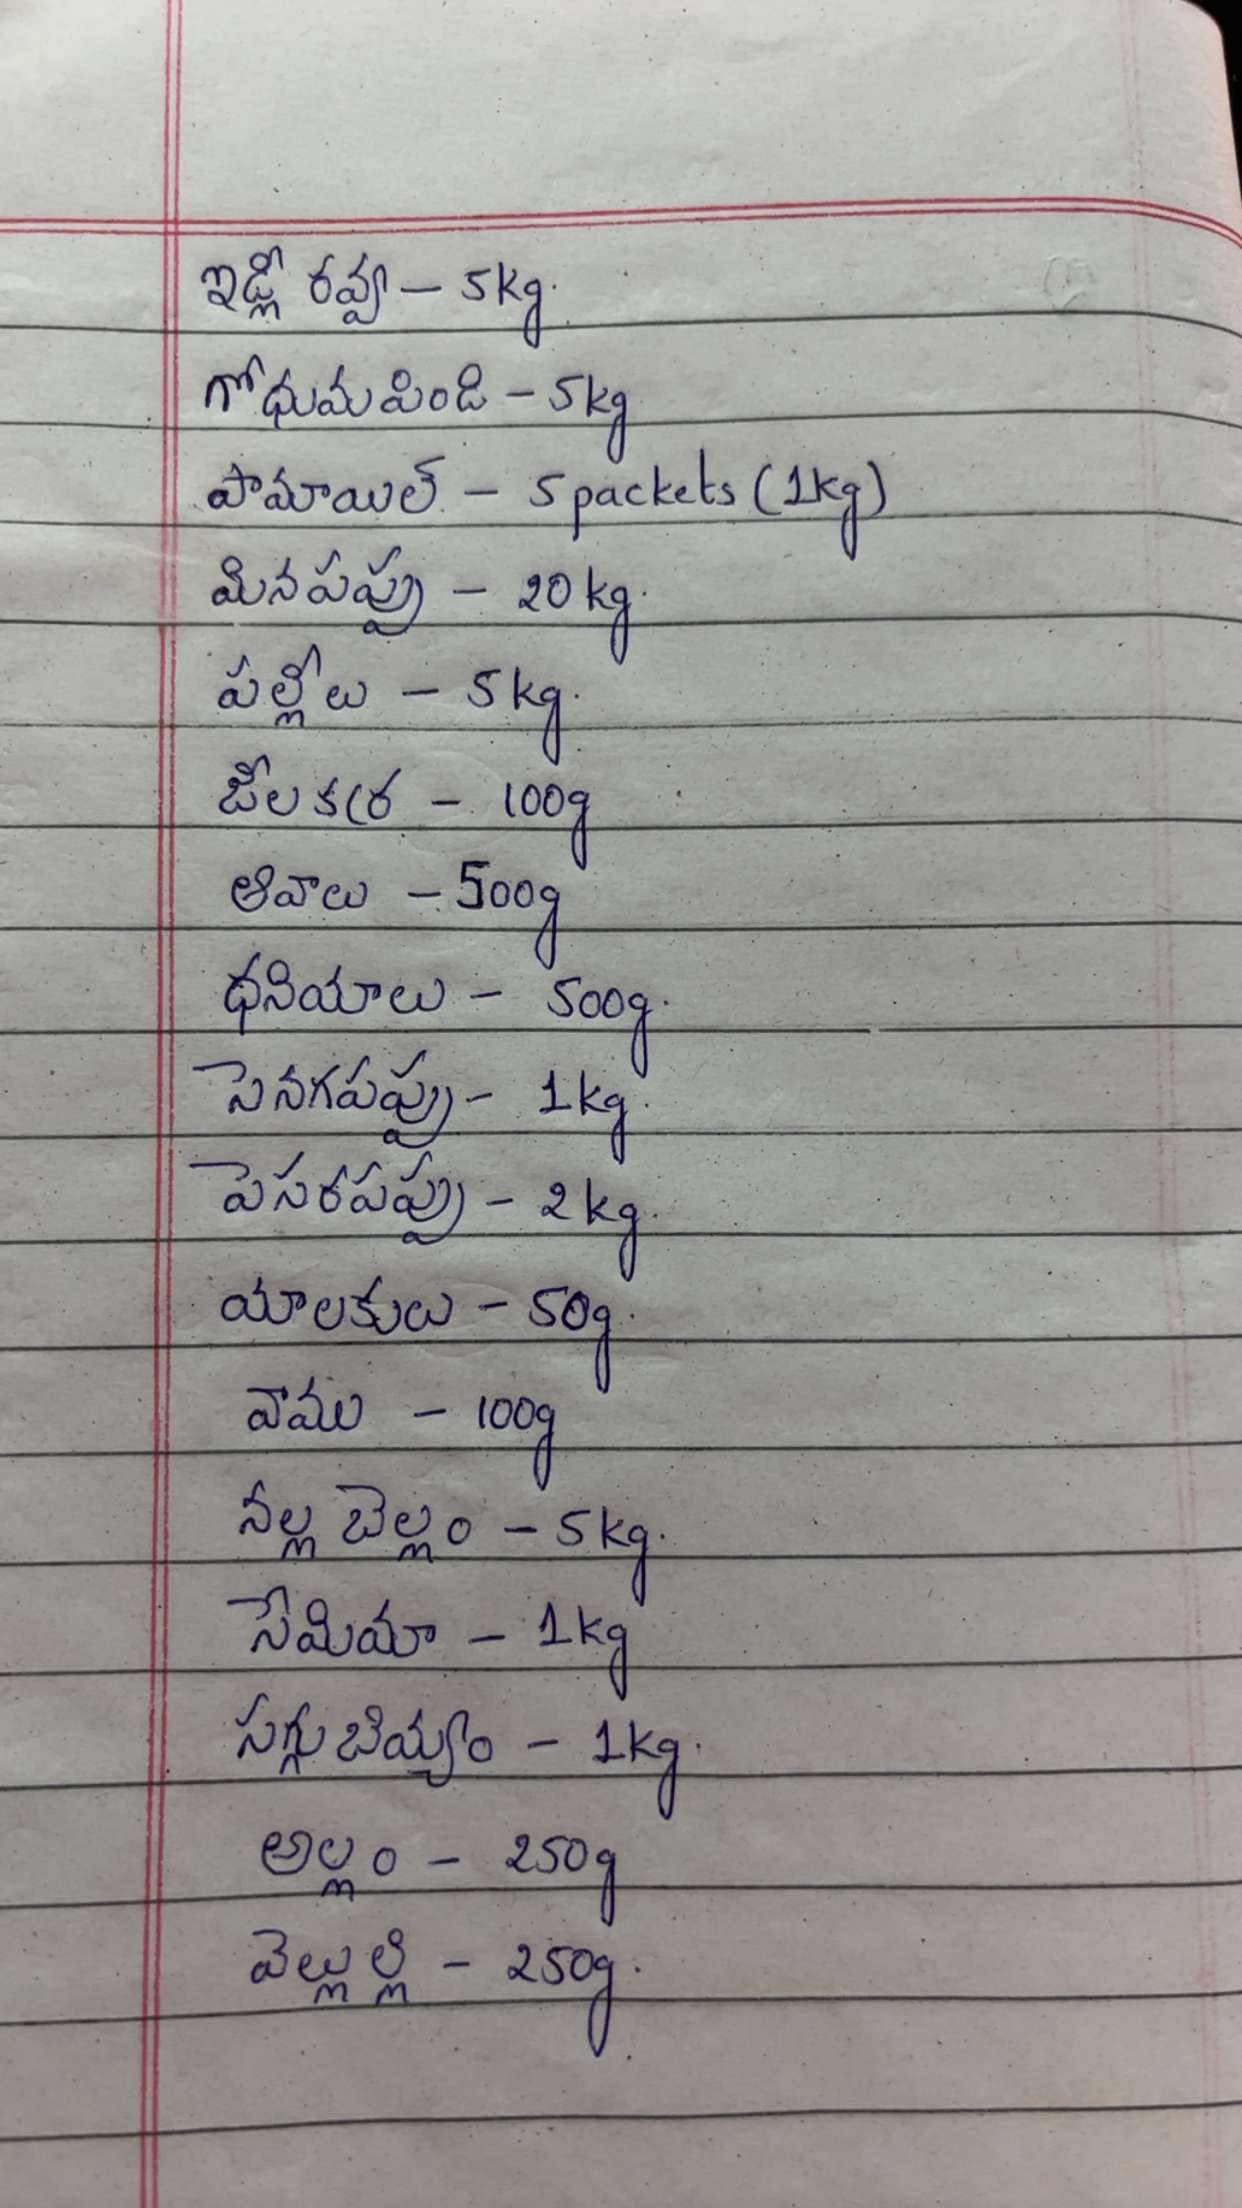 ఇడ్లీ రవ్వ – 5kg.
గోధుమపిండి – 5kg
పామాయిల్ – 5 packets (1kg)
మినపప్పు – 20 kg.
పల్లీలు – 5 kg.
జీలకర్ర – 100g
ఆవాలు – 500g
ధనియాలు – 500g.
సెనగపప్పు – 1kg.
పెసరపప్పు – 2 kg.
యాలకులు – 50g.
వాము – 100g
నల్ల బెల్లం – 5kg.
సేమియా – 1kg
సగ్గుబియ్యం – 1kg.
అల్లం – 250g
వెల్లుల్లి – 250g.